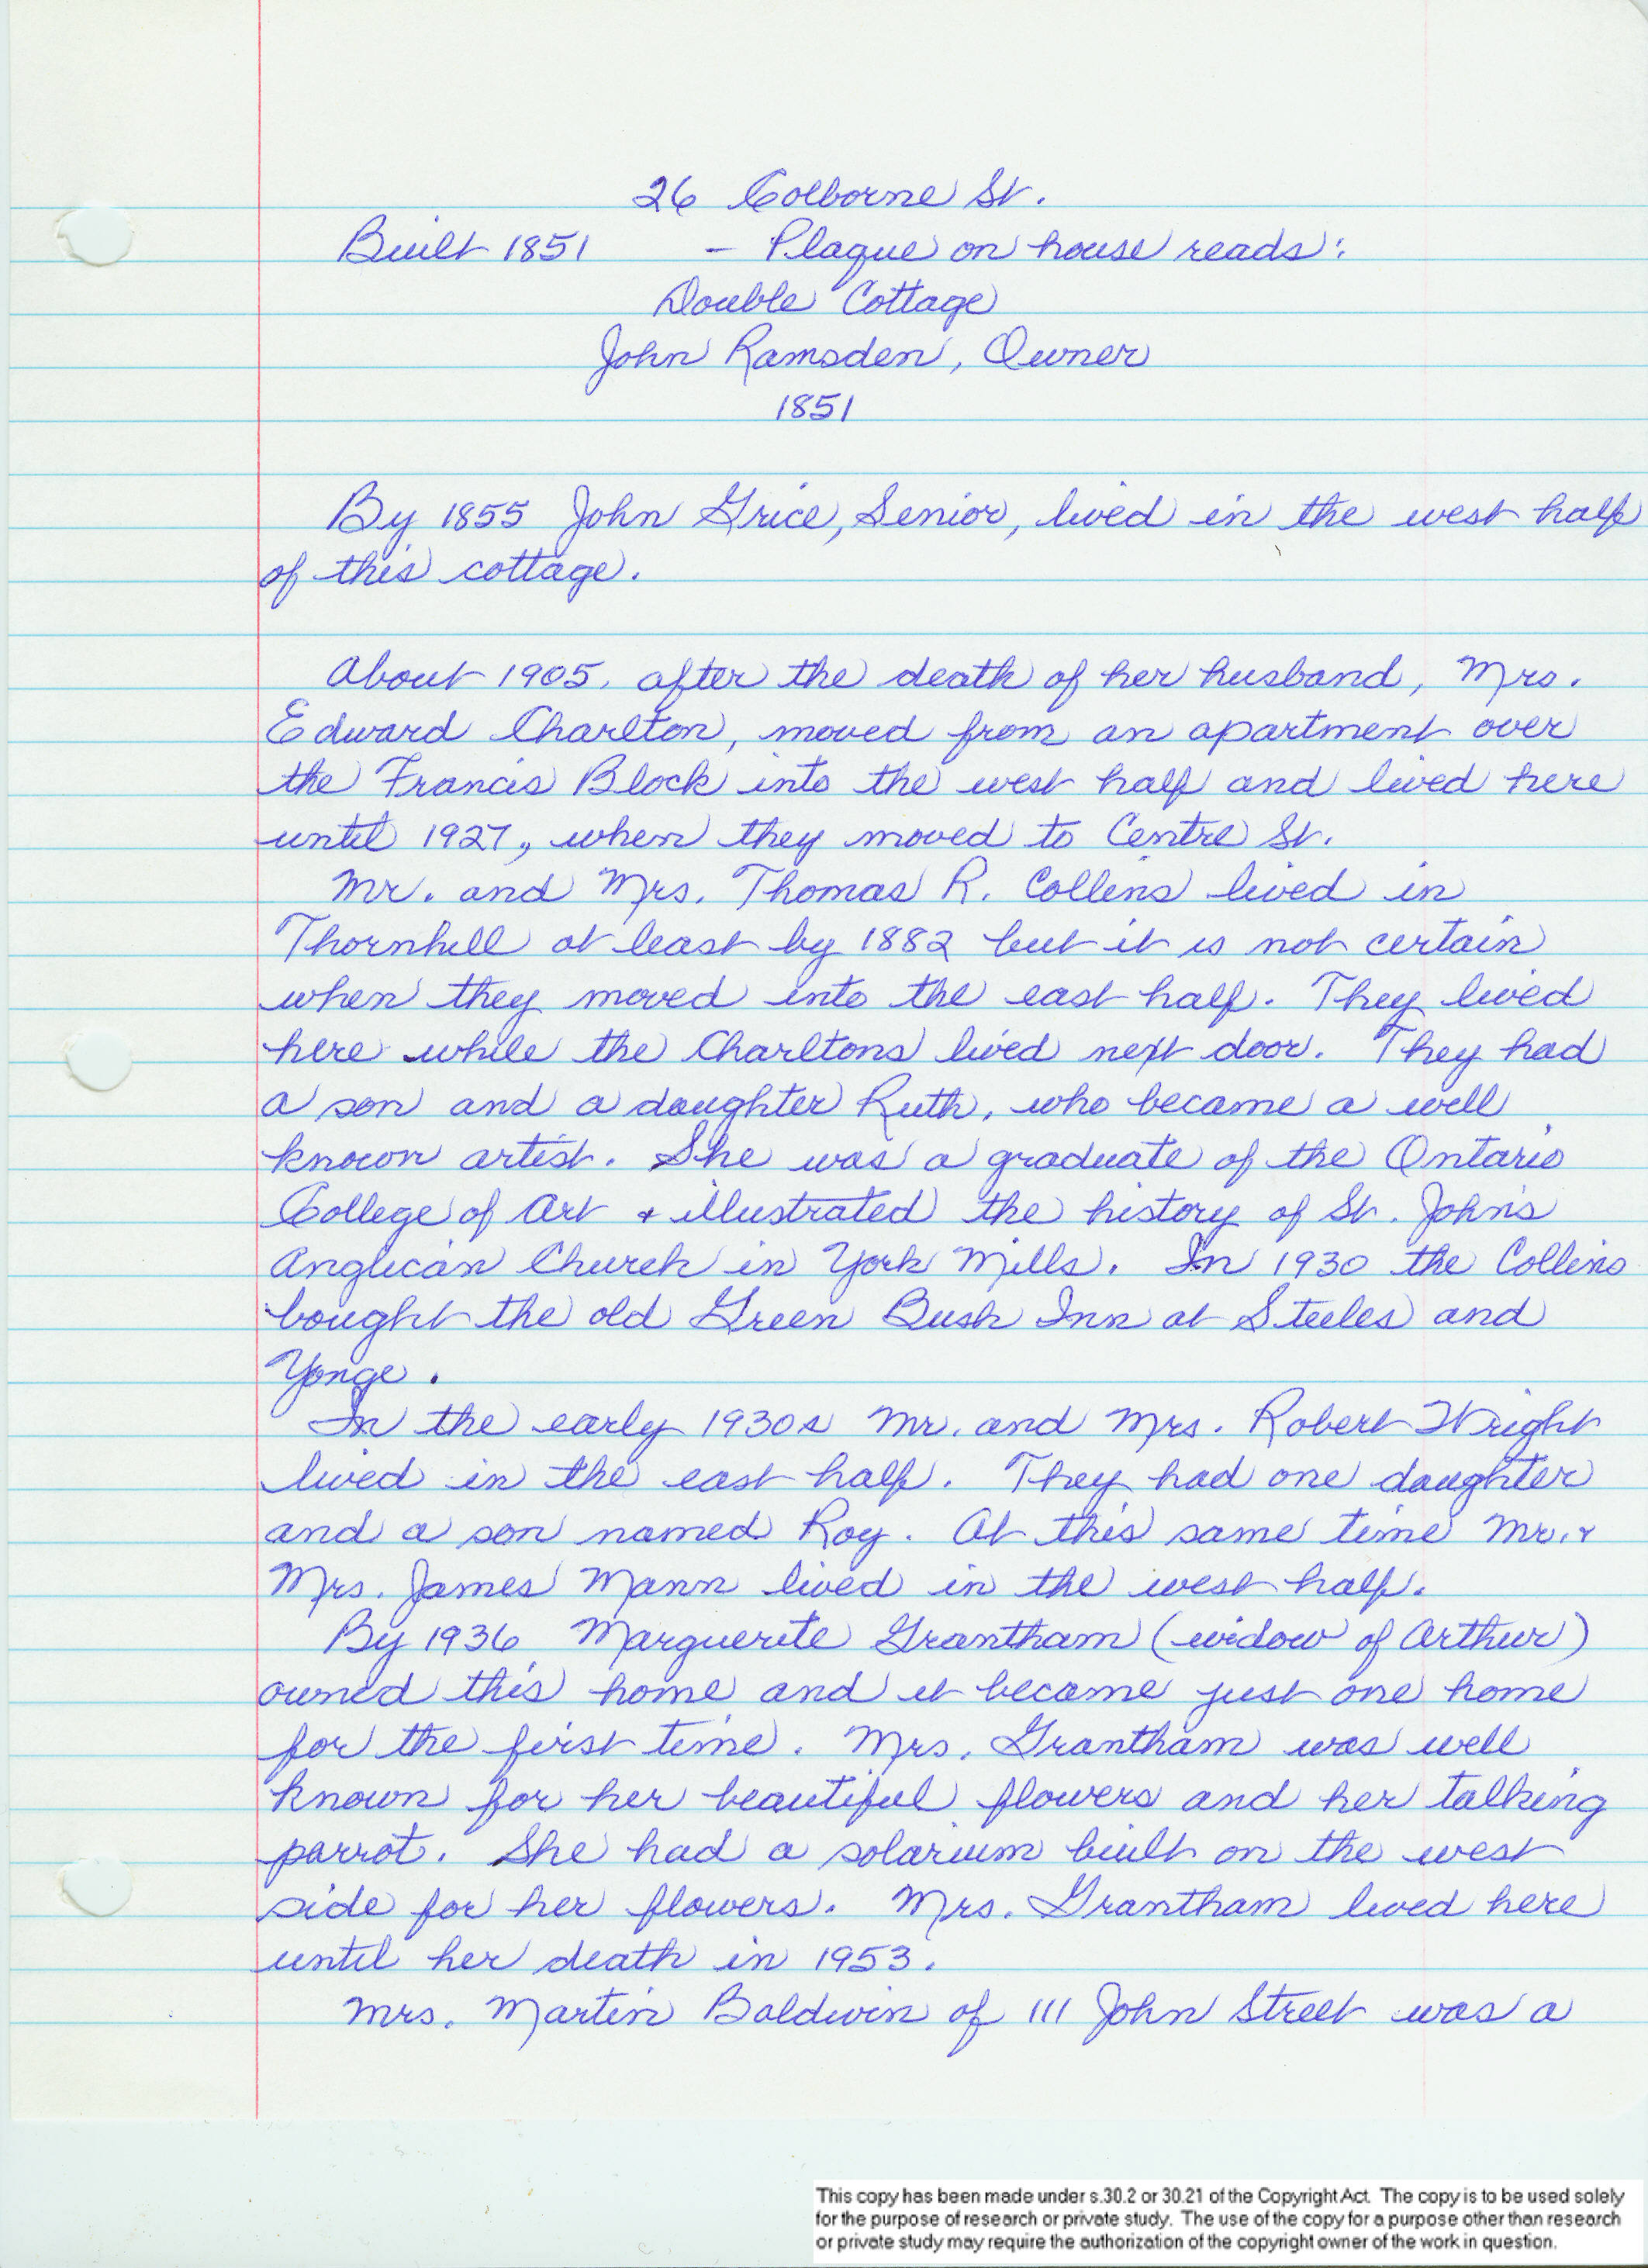 26 Colborne St.
Built 1851 - Plaque on house reads:
Double Cottage
John Ramsden, Owner
1851
By 1855 John Grice, Senior, lived in the west half
of this cottage.
About 1905, after the death of her husband, Mrs.
Edward Charlton, moved from an apartment over
the Francis Block into the west half and lived here
until 1927, when they moved to Centre St.
Mr. and Mrs. Thomas R. Collins lived in
Thornhill at least by 1882 but it is not certain
when they moved into the east half. They lived
here while the Charltons lived next door. They had
a son and a daughter Ruth, who became a well
known artist. She was a graduate of the Ontario
College of Art + illustrated the history of St. John's
Anglican Church in York Mills. In 1930 the Collins
bought the old Green Bush Inn at Steeles and
Yonge.
In the early 1930s Mr. and Mrs. Robert Wright
lived in the east half. They had one daughter
and a son named Roy. At this same time Mr. +
Mrs. James Mann lived in the west half.
By 1936, Marguerite Grantham (widow of Arthur)
owned this home and it became just one home
for the first time. Mrs. Grantham was well
known for her beautiful flowers and her talking
parrot. She had a solarium built on the west
side for her flowers. Mrs. Grantham lived here
until her death in 1953.
Mrs. Martin Baldwin of 111 John Street was a
This copy has been made under s.30.2 or 30.21 of the Copyright Act. The copy is to be used solely
for the purpose of research or private study. The use of the copy for a purpose other than research
or private study may require the authorization of the copyright owner of the work in question.